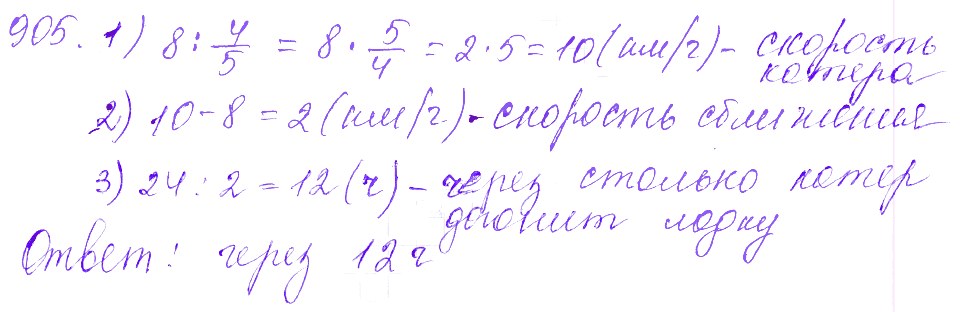 905. 1) 8 : 4/5 = 8 · 5/4 = 2 · 5 = 10 (км/ч) - скорость
катера
2) 10 - 8 = 2 (км/ч) - скорость сближения
3) 24 : 2 = 12 (ч) - через столько катер
догонит лодку
Ответ: через 12 ч